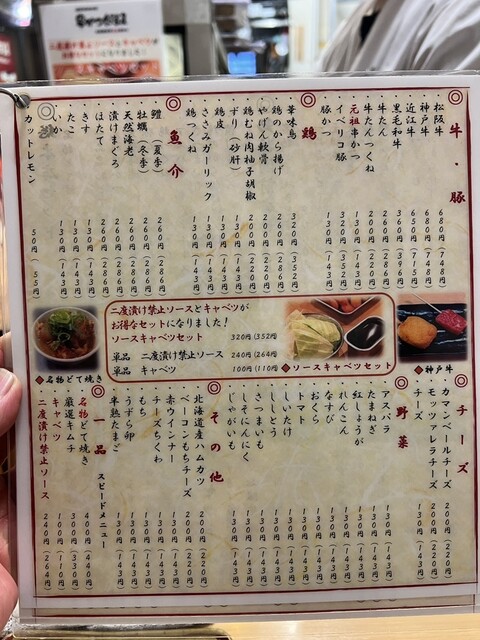 ◎牛・豚
松阪牛 680円(748円)
神戸牛 680円(748円)
近江牛 650円(715円)
黒毛和牛 360円(396円)
牛たん 260円(286円)
牛たんつくね 200円(220円)
元祖串かつ 130円(143円)
イベリコ豚 320円(352円)
豚かつ 130円(143円)
◎鶏
華味鳥 320円(352円)
鶏のから揚げ
やげん軟骨
鶏むね肉柚子胡椒
ずり(砂肝) 130円(143円)
鶏皮 130円(143円)
ささみガーリック 130円(143円)
鶏つくね 130円(143円)
◎魚介
鱧(夏季) 260円(286円)
牡蠣(冬季) 260円(286円)
天然海老 260円(286円)
漬けまぐろ 260円(286円)
ほたて
きす 130円(143円)
たこ 130円(143円)
いか 130円(143円)
カットレモン 50円(55円)
二度漬け禁止ソースとキャベツが
お得なセットになりました!
ソースキャベツセット 320円(352円)
単品 二度漬け禁止ソース 240円(264円)
単品 キャベツ 100円(110円)
◆名物どて焼き
◆ソースキャベツセット
◆神戸牛
◎チーズ
カマンベールチーズ 200円(220円)
モッツァレラチーズ 200円(220円)
チーズ 130円(143円)
◎野菜
アスパラ 130円(143円)
たまねぎ 130円(143円)
紅しょうが 130円(143円)
れんこん 130円(143円)
なすび 130円(143円)
おくら 130円(143円)
トマト 130円(143円)
しいたけ 130円(143円)
ししとう 130円(143円)
さつまいも 130円(143円)
しそにんにく 130円(143円)
じゃがいも 130円(143円)
◎その他
北海道産ハムカツ 200円(220円)
ベーコンもちチーズ 200円(220円)
赤ウインナー 130円(143円)
チーズちくわ 130円(143円)
もち 130円(143円)
うずら卵 130円(143円)
半熟たまご 130円(143円)
◎一品 スピードメニュー
名物どて焼き 400円(440円)
厳選キムチ 300円(330円)
キャベツ 100円(110円)
二度漬け禁止ソース 240円(264円)